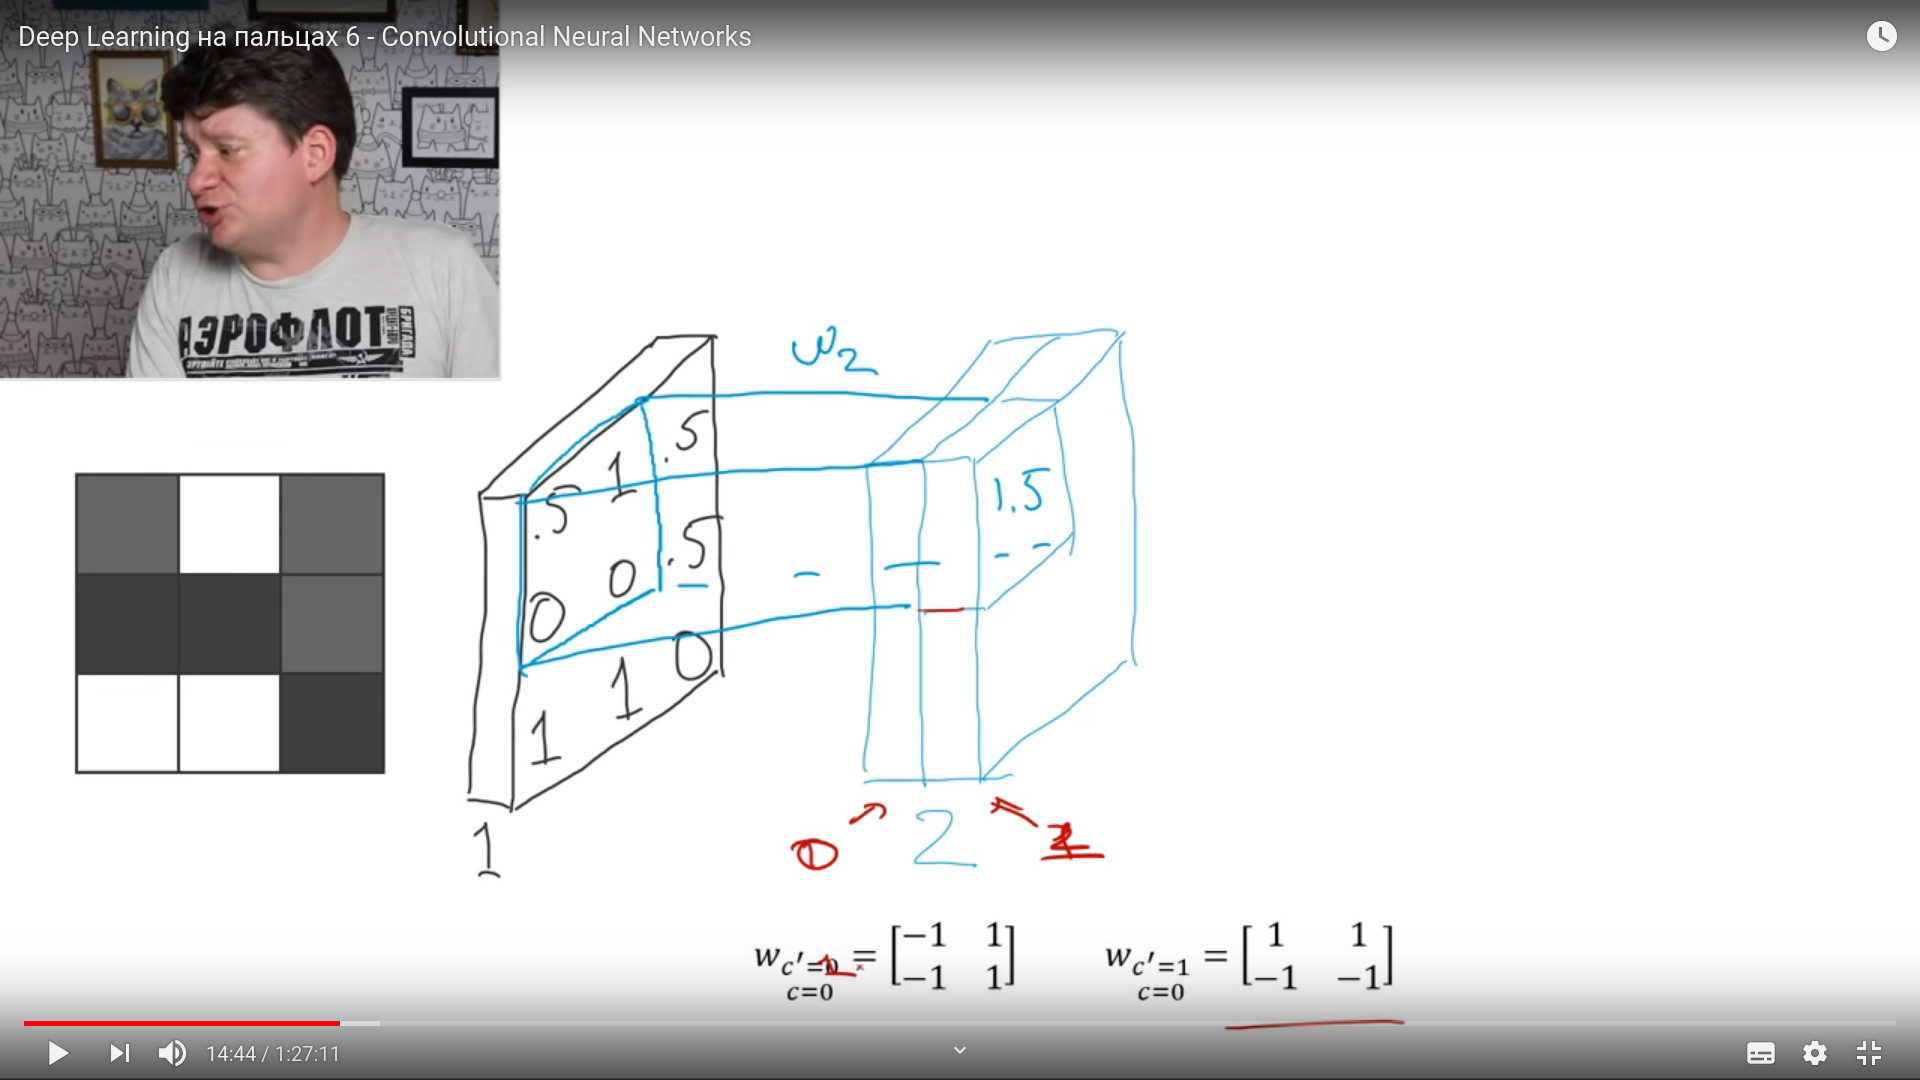 Deep Learning на пальцах 6 - Convolutional Neural Networks
АЭРОФЛОТ
БРИГАДА
w2
.5 1 .5
0 0 .5
1 1 0
1.5
1
2
w c'=0 c=0 = [−1 1 −1 1]
w c'=1 c=0 = [1 1 −1 −1]
14:44 / 1:27:11